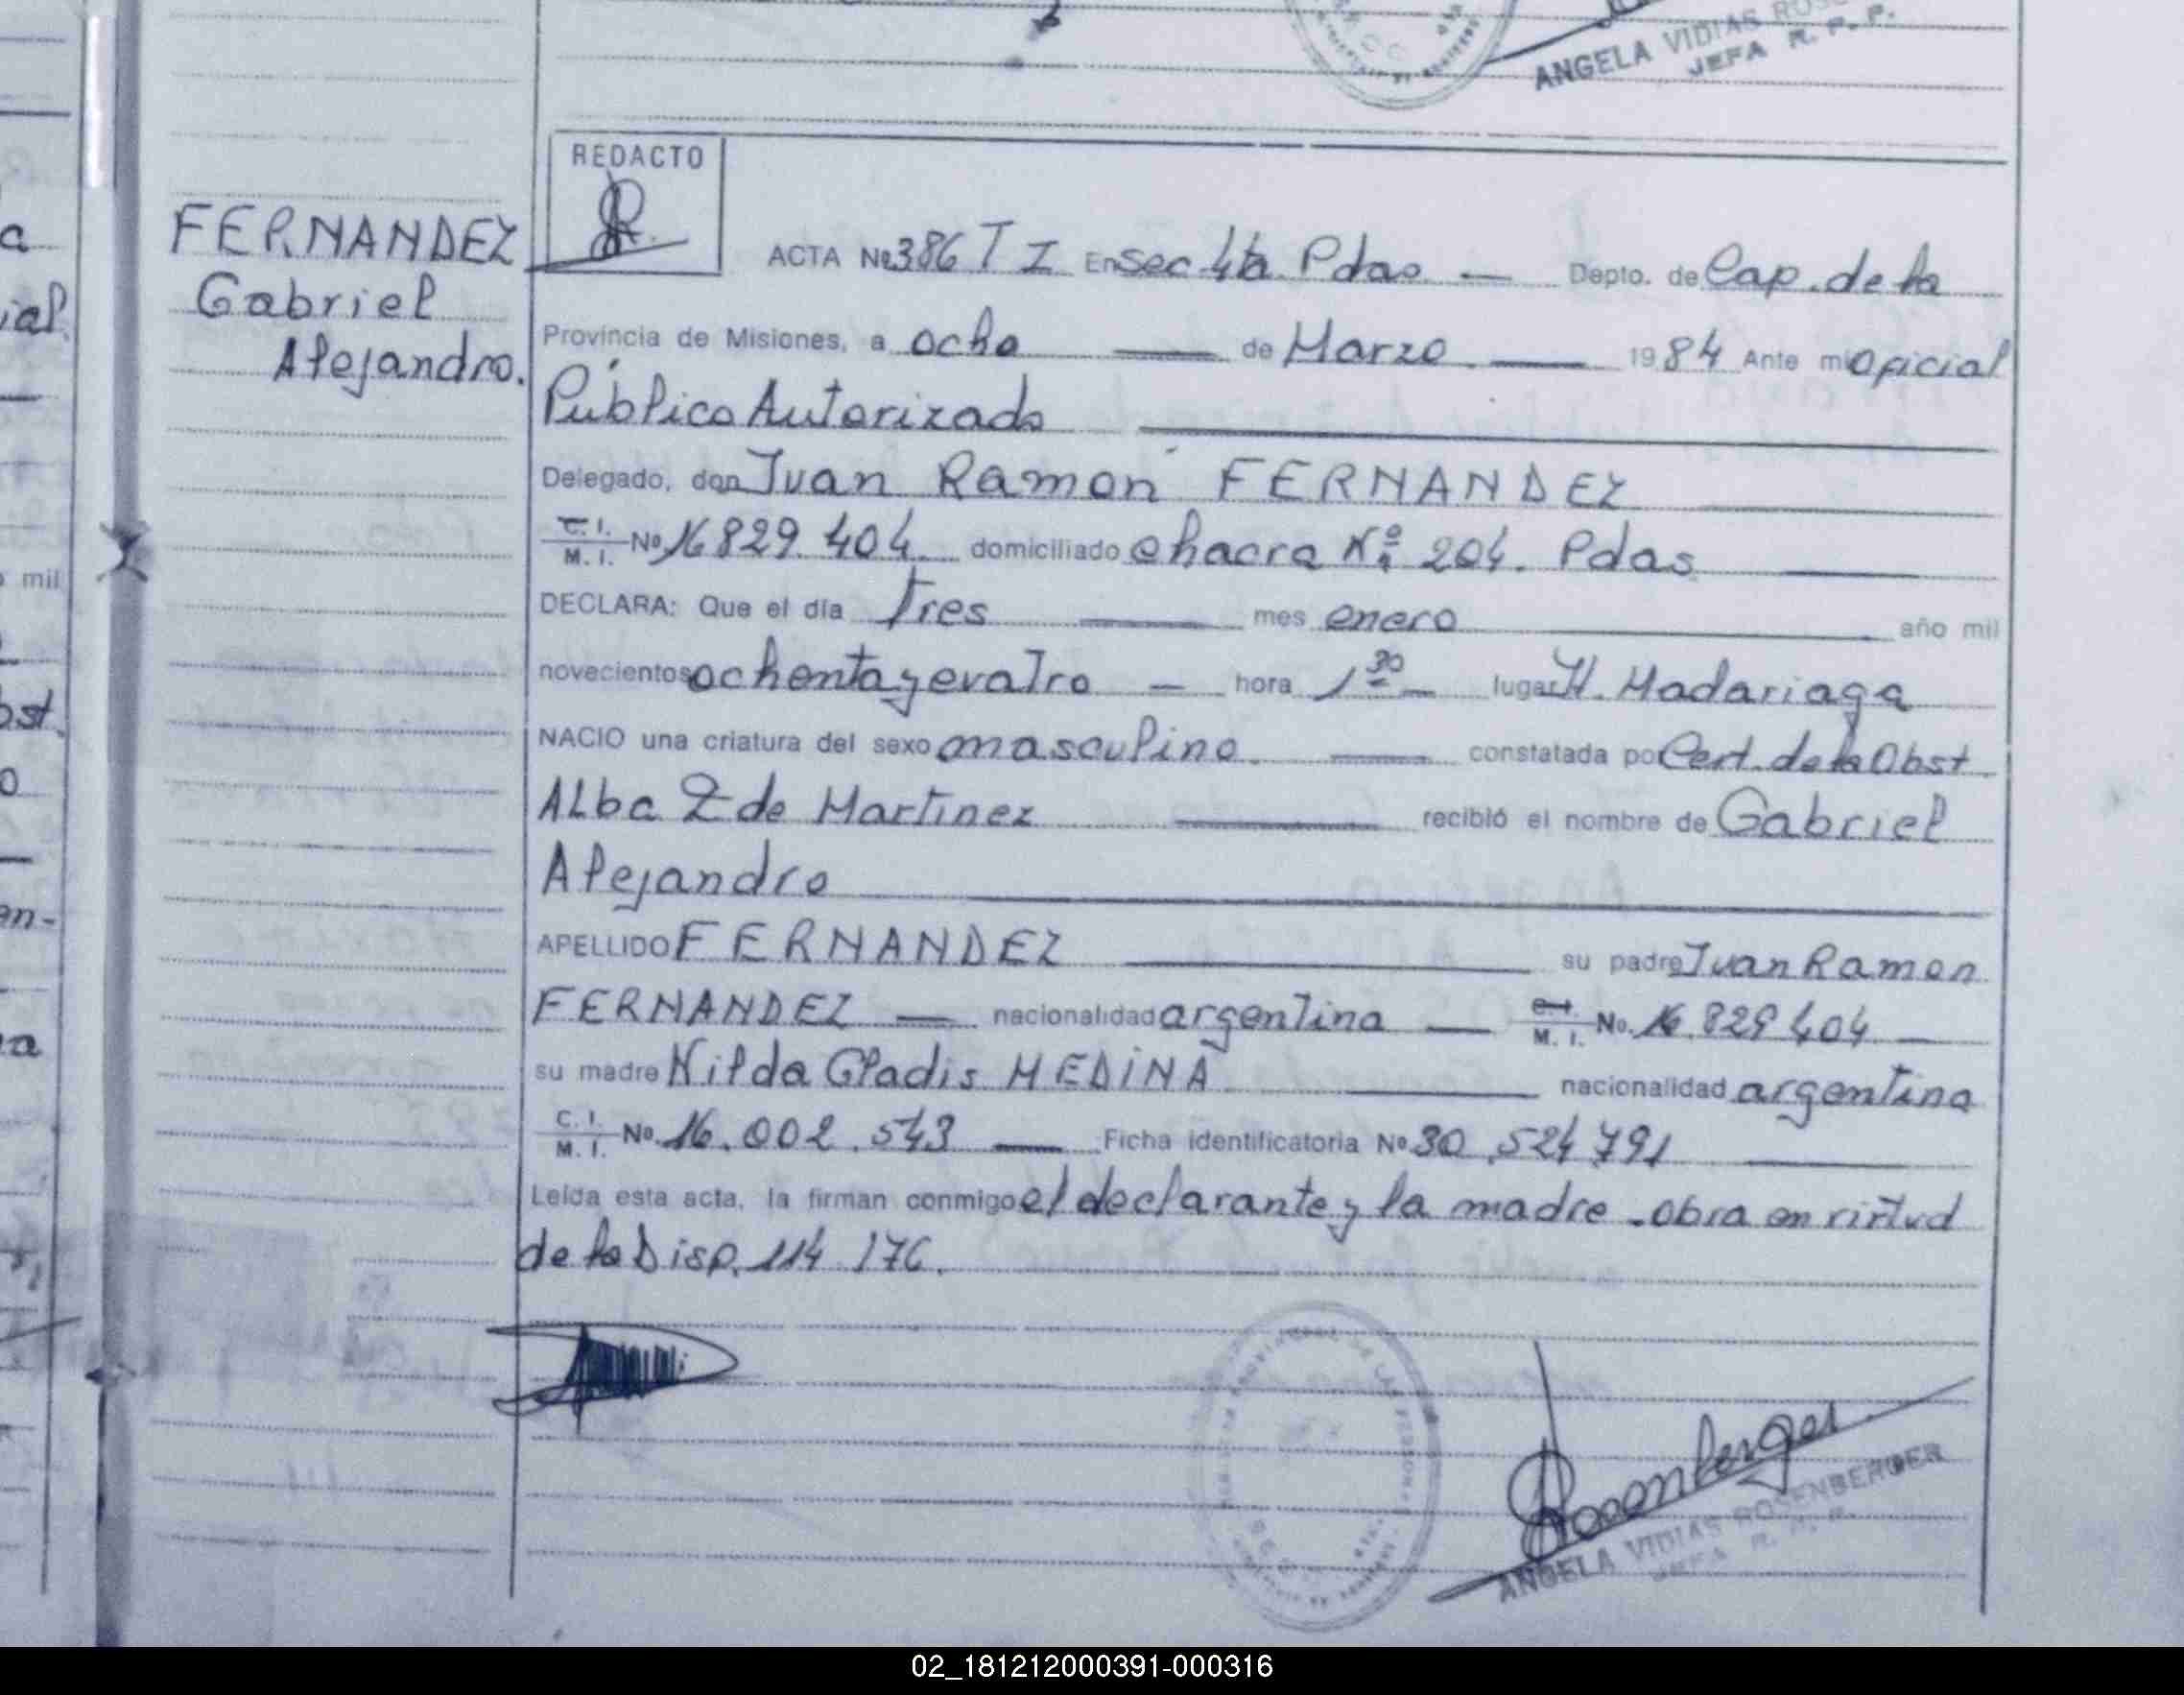 ANGELA VIDIAS ROS
JEFA R. P. P.
REDACTO
FERNANDEZ
Gabriel
Alejandro.
ACTA No 386 T I En Sec 4ta Pdas. — Depto. de Cap. de la
Provincia de Misiones, a ocho — de Marzo — 1984 Ante mi Oficial
Público Autorizado
Delegado, don Juan Ramón FERNANDEZ
C. I. M. I. No 16 829. 404. domiciliado Chacra Nº 204. Pdas
DECLARA: Que el día Tres — mes enero — año mil
novecientos ochenta y cuatro — hora 1 30 — lugar H. Madariaga
NACIO una criatura del sexo masculino. — constatada por Cert. de la Obst.
Alba Z de Martinez — recibió el nombre de Gabriel
Alejandro
APELLIDO FERNANDEZ — su padre Juan Ramon
FERNANDEZ — nacionalidad argentina — C. I. M. I. No. 16.829 404. —
su madre Nilda Gladis MEDINA — nacionalidad argentina
C. I. M. I. No. 16.002.543 — Ficha identificatoria No 30.524.791
Leída esta acta, la firman conmigo el declarante y la madre. Obra en virtud
de la Disp. 114 176.
Rosenberger
ANGELA VIDIAS ROSENBERGER
JEFA R. P. P.
02_181212000391-000316